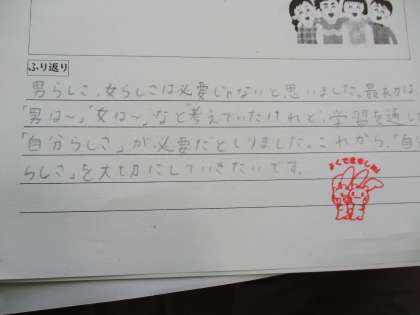 ふり返り
男らしさ、女らしさは必要じゃないと思いました。最初は、
「男は〜」「女は〜」など考えていたけれど、学習を通し
「自分らしさ」が必要だとしりました。これから、「自
らしさ」を大切にしていきたいです。
よくできました